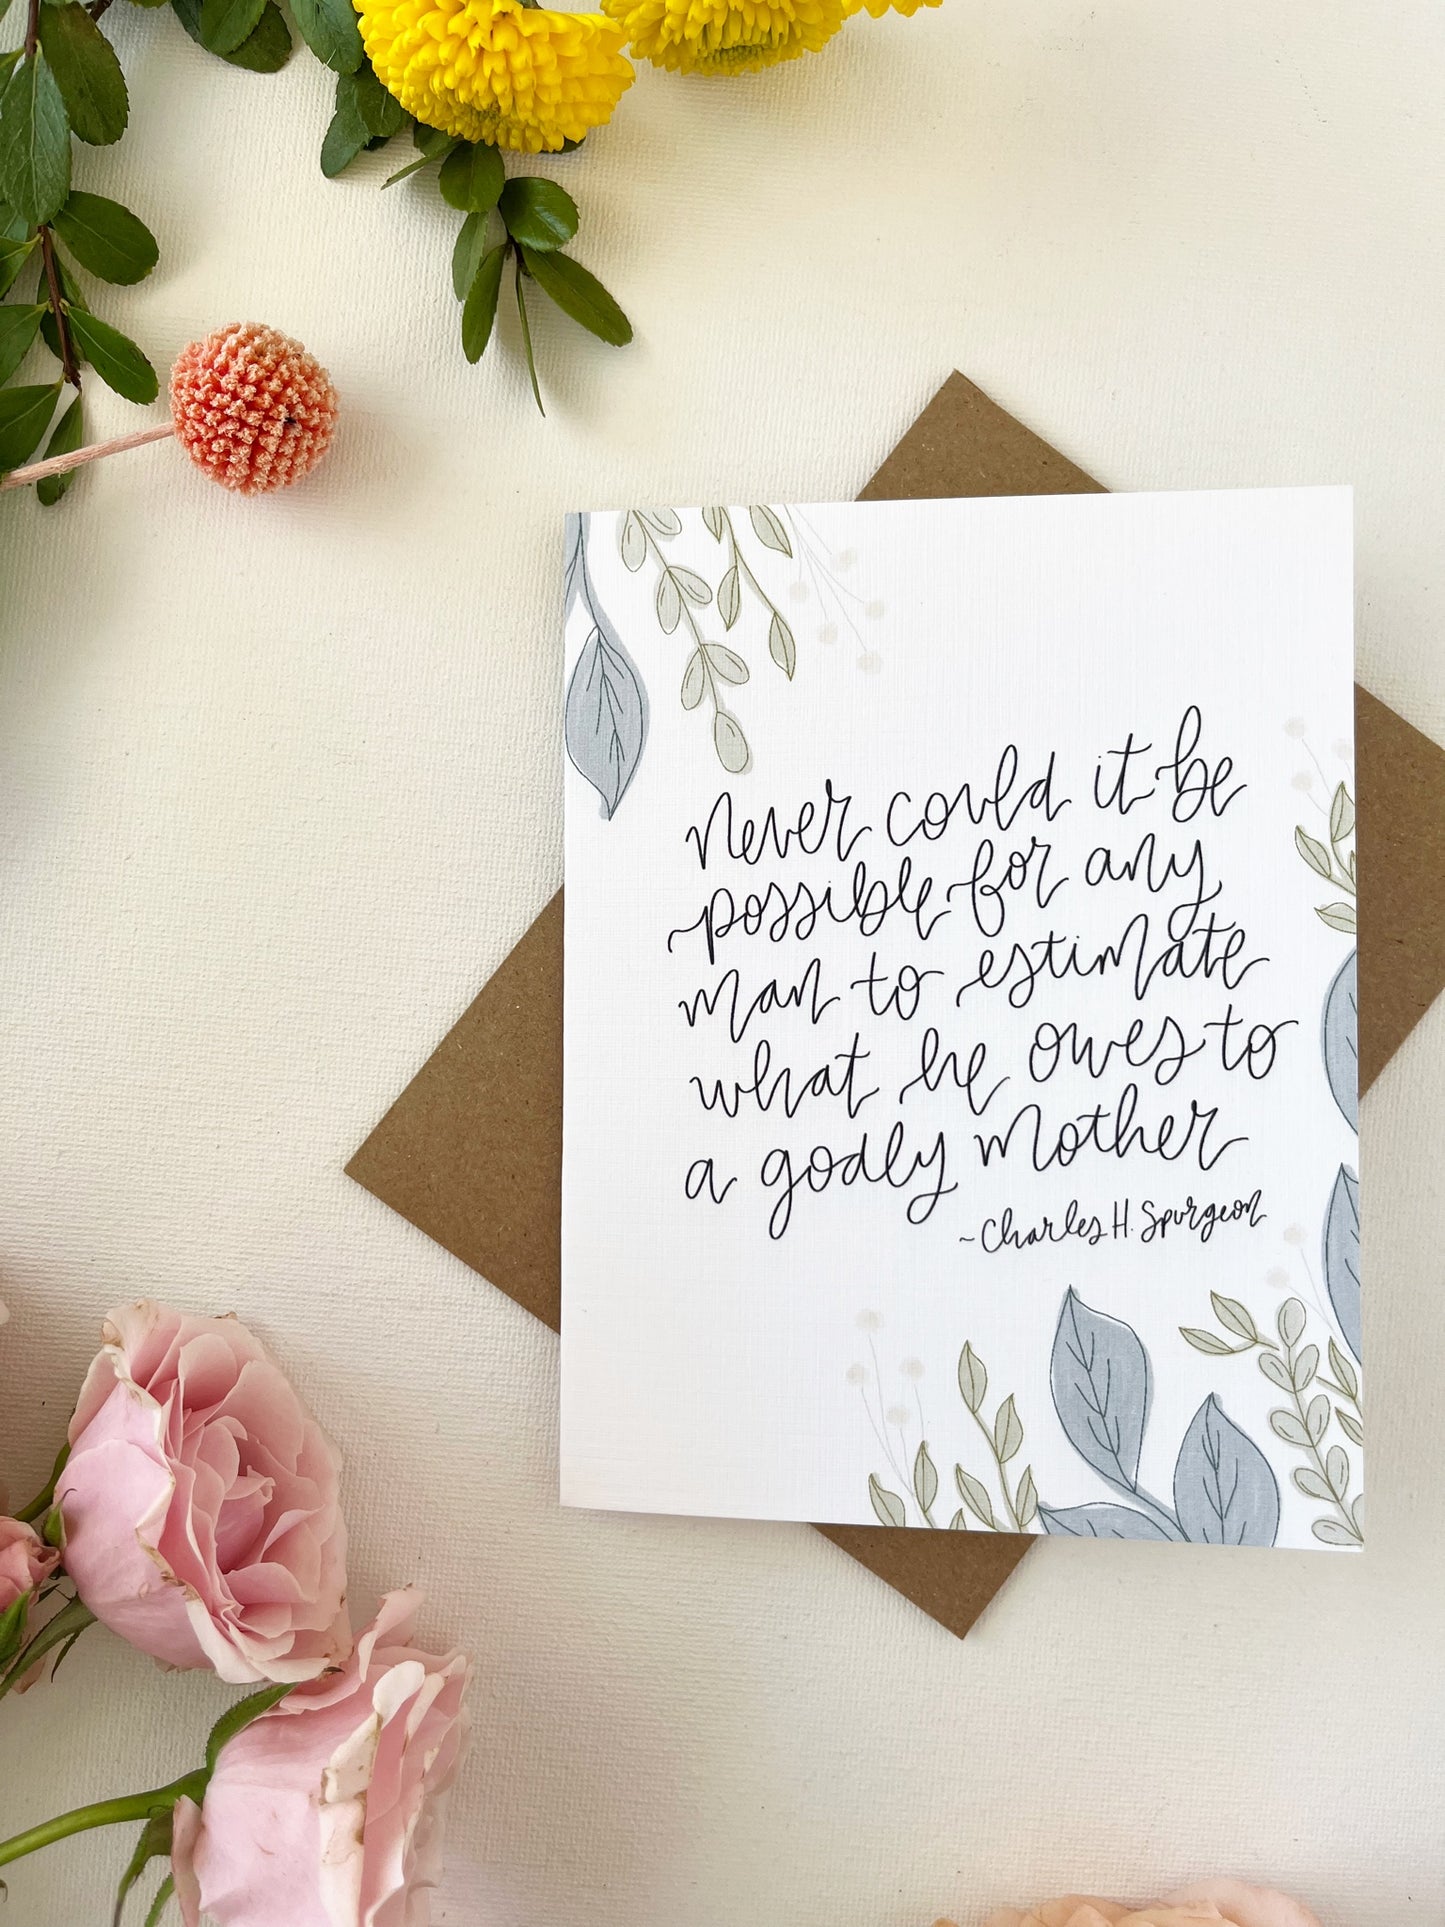 never could it be
possible for any
man to estimate
what he owes to
a godly mother
~Charles H. Spurgeon